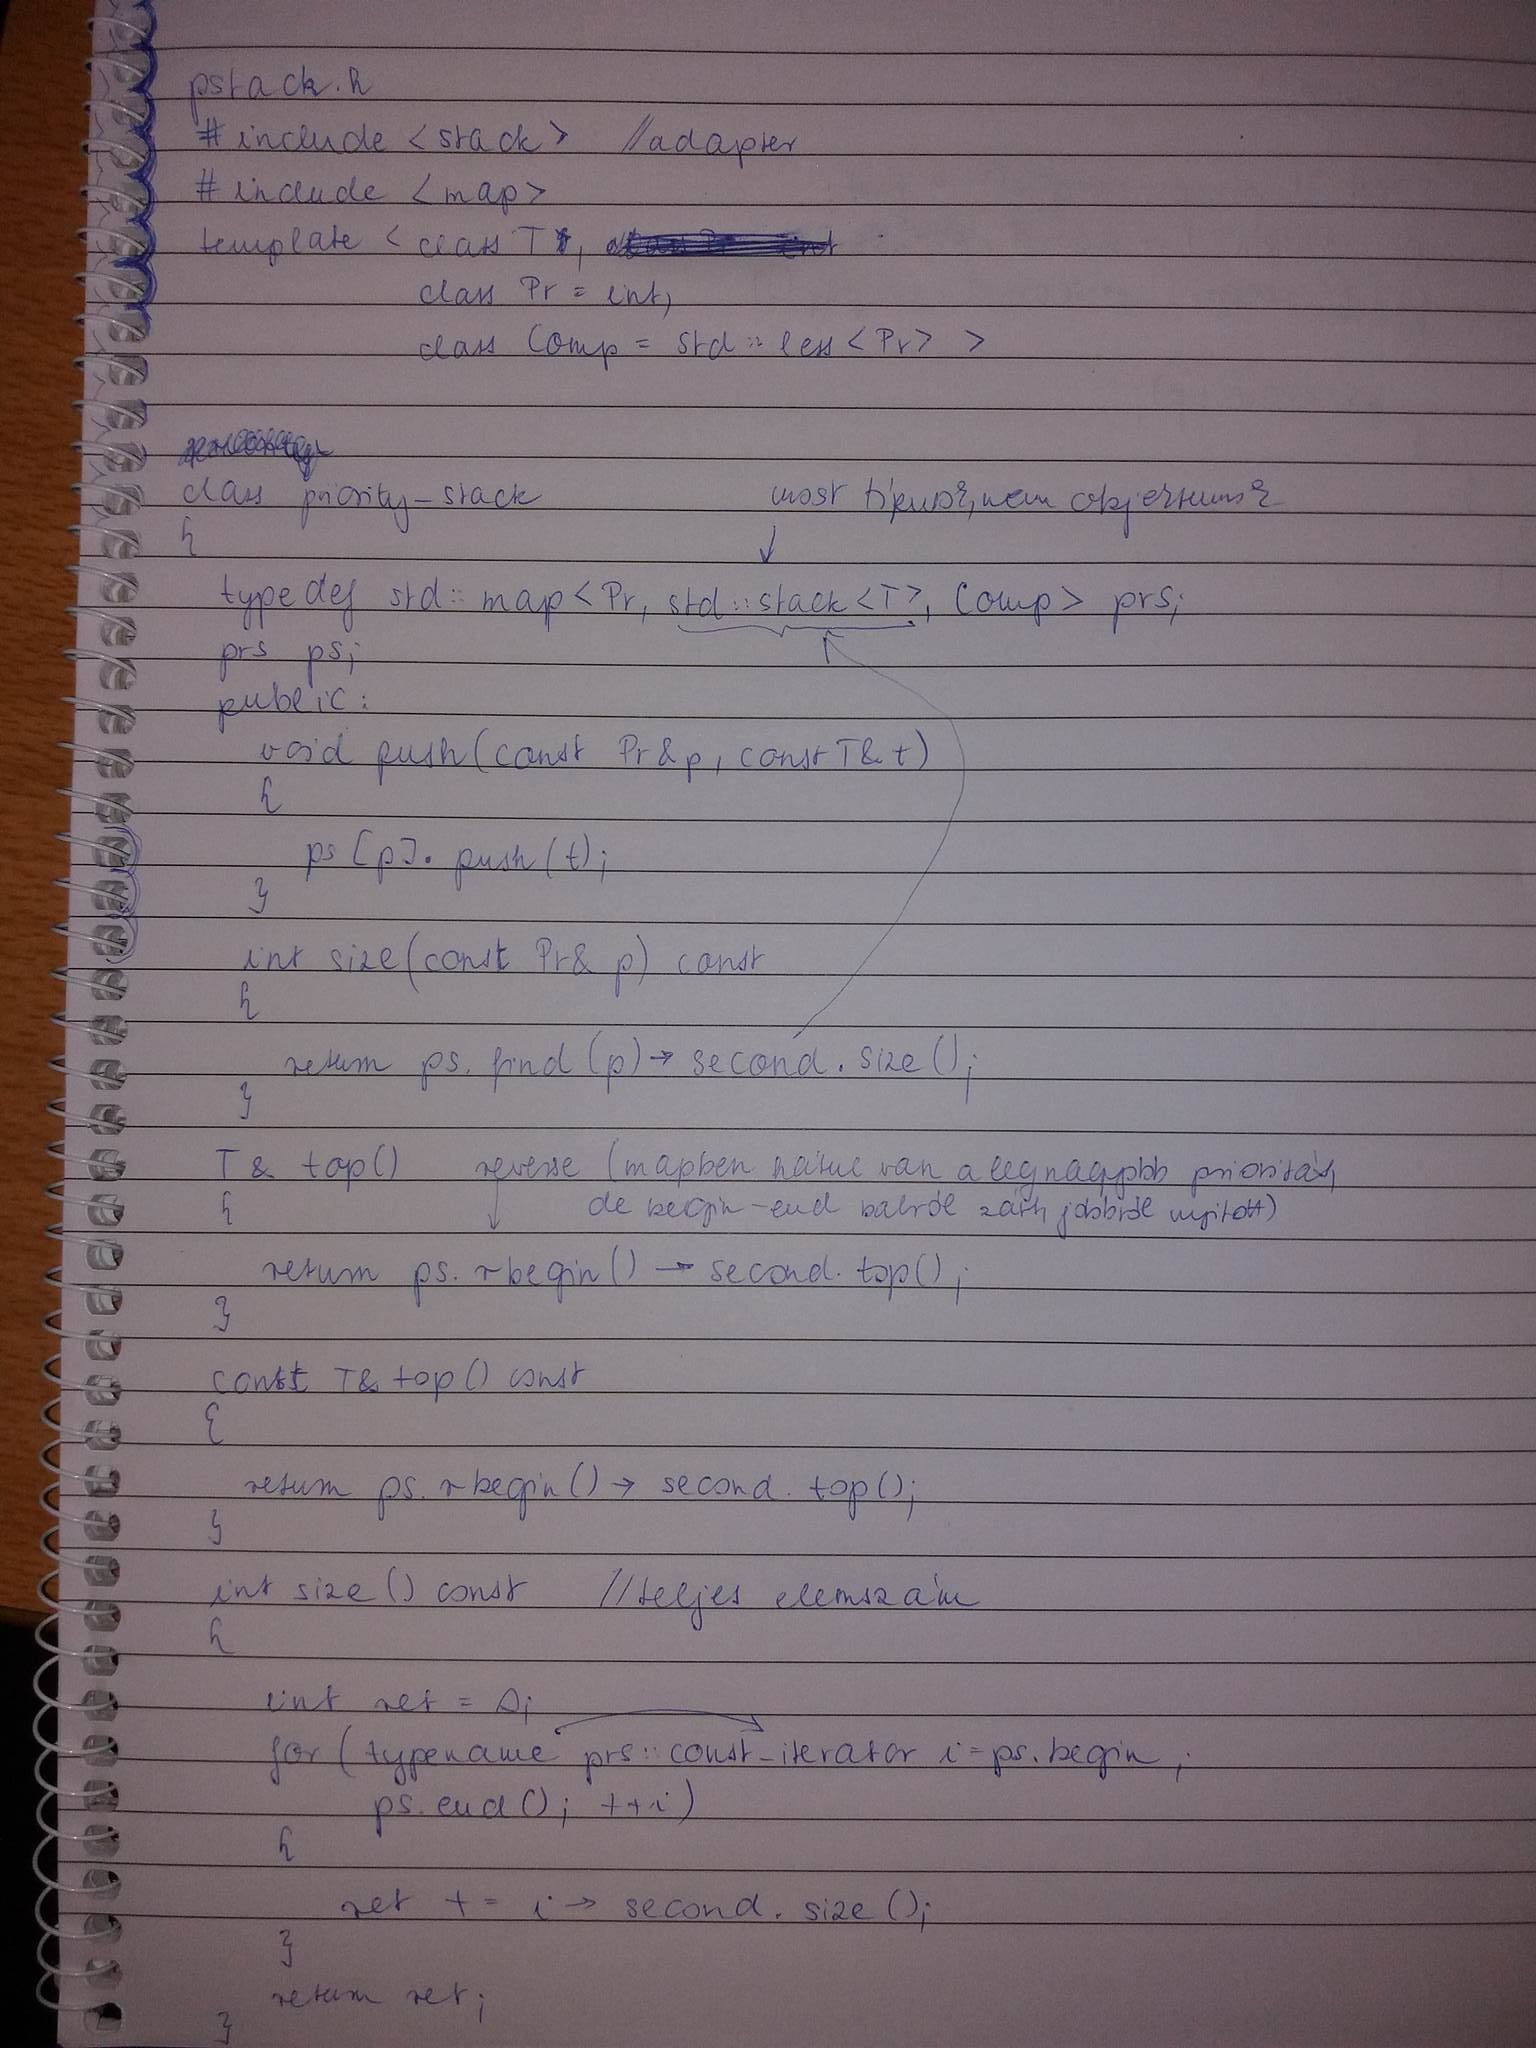 pstack.h
#include <stack> //adapter
#include <map>
template < class T,
class Pr = int,
class Comp = std::less<Pr> >
class priority_stack
most típus, nem objektum
{
typedef std::map<Pr, std::stack<T>, Comp> prs;
prs ps;
public:
void push(const Pr& p, const T& t)
{
ps[p].push(t);
}
int size(const Pr& p) const
{
return ps.find(p)->second.size();
}
T& top() reverse (mapben hátul van a legnagyobb prioritás,
{ de begin-end balról zárt, jobbról nyitott)
return ps.rbegin()->second.top();
}
const T& top() const
{
return ps.rbegin()->second.top();
}
int size() const //teljes elemszám
{
int ret = 0;
for(typename prs::const_iterator i=ps.begin;
ps.end(); ++i)
{
ret += i->second.size();
}
return ret;
}